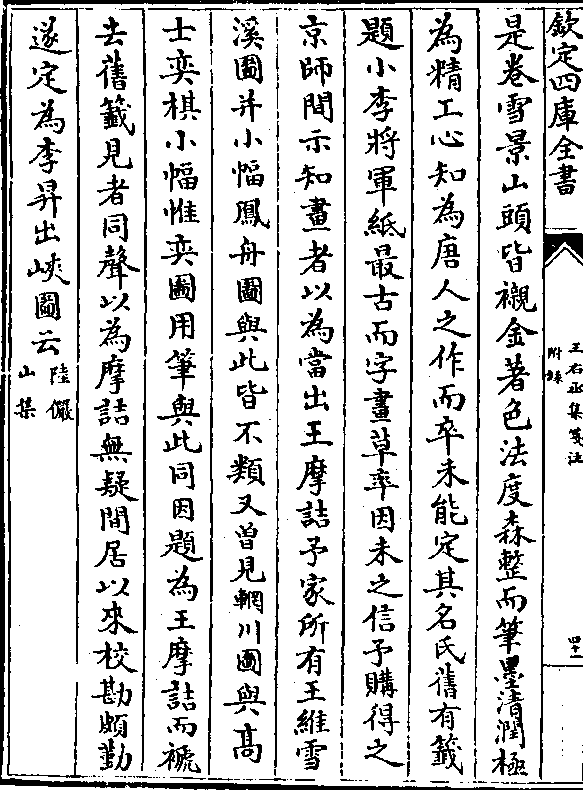 欽定四庫全書
王右丞集箋注
附錄
四十一
是卷雪景山頭皆襯金著色法度森整而筆墨清潤極
為精工心知為唐人之作而卒未能定其名氏舊有籤
題小李將軍紙最古而字畫草率因未之信予購得之
京師間示知畫者以為當出王摩詰予家所有王維雪
溪圖并小幅鳳舟圖與此皆不類又曾見輞川圖與高
士奕棋小幅惟奕圖用筆與此同因題為王摩詰而褫
去舊籤見者同聲以為摩詰無疑間居以來校勘頗勤
遂定為李昇出峽圖云
陸儼
山集